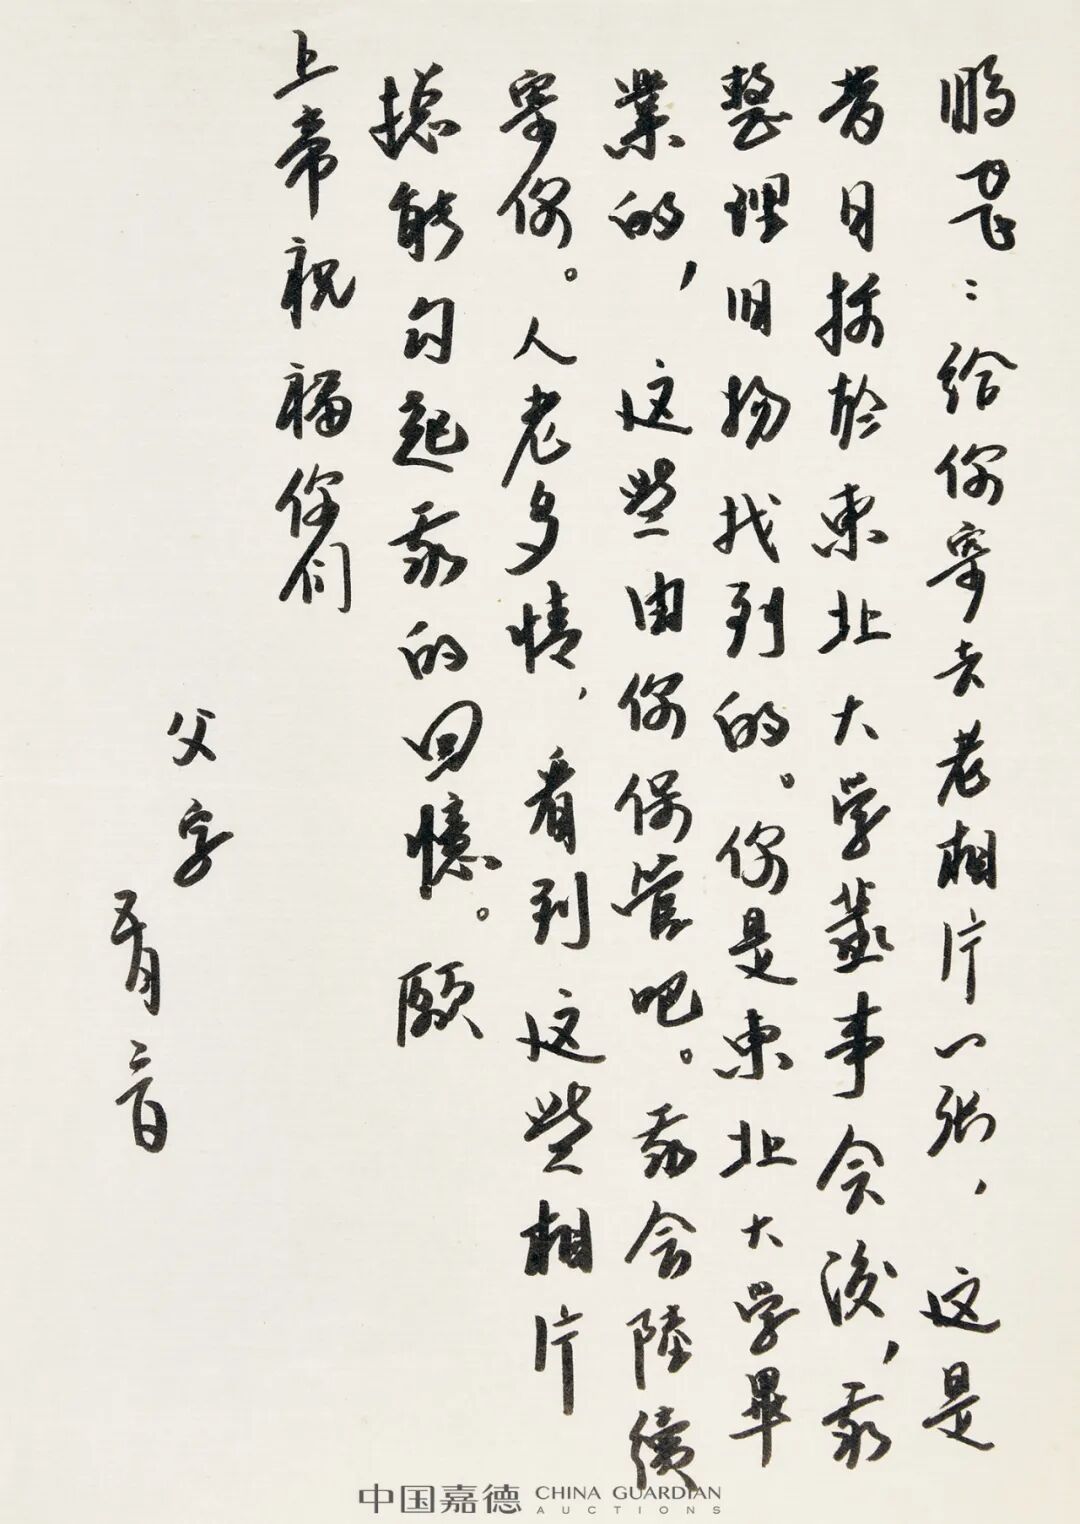 鹏飞：给你寄去老相片一张，这是
昔日摄於東北大学董事会後，我
整理旧物找到的。你是東北大学畢
業的，这些由你保管吧。我会陸續
寄你。人老多情，看到这些相片
捴能勾起我的回憶。願
上帝祝福你们
父字
五月
中国嘉德 CHINA GUARDIAN
AUCTIONS